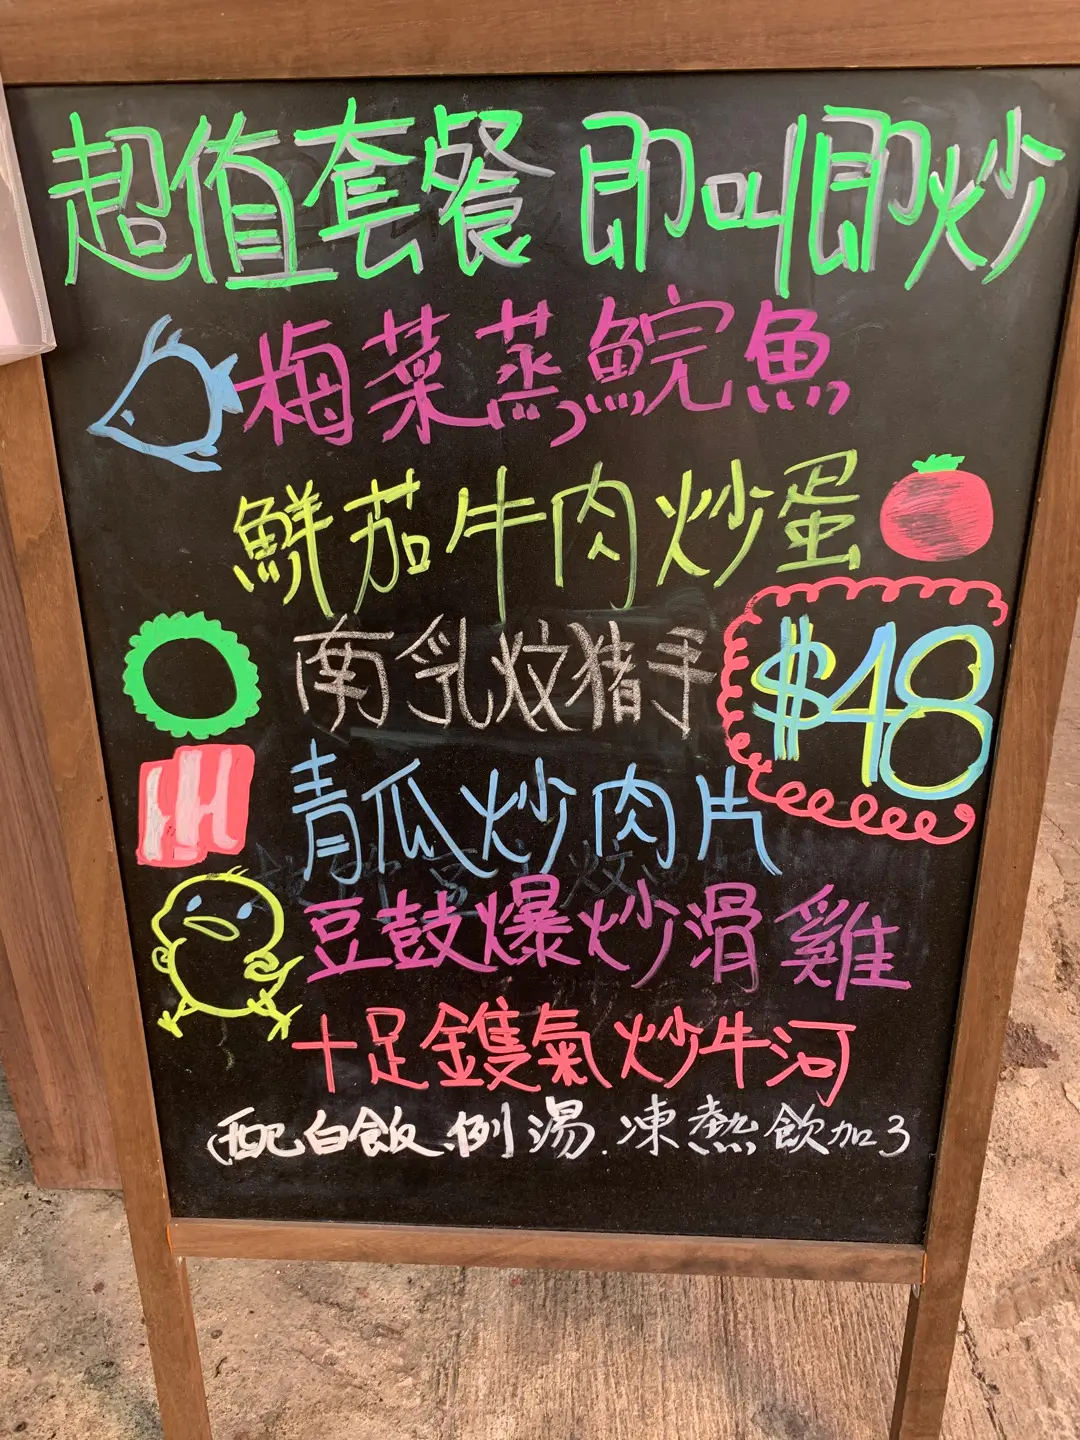 超值套餐 即叫即炒
梅菜蒸鯇魚
鮮茄牛肉炒蛋
南乳炆猪手
$48
青瓜炒肉片
豆鼓爆炒滑雞
十足鑊氣炒牛河
配白飯.例湯.凍熱飲加3